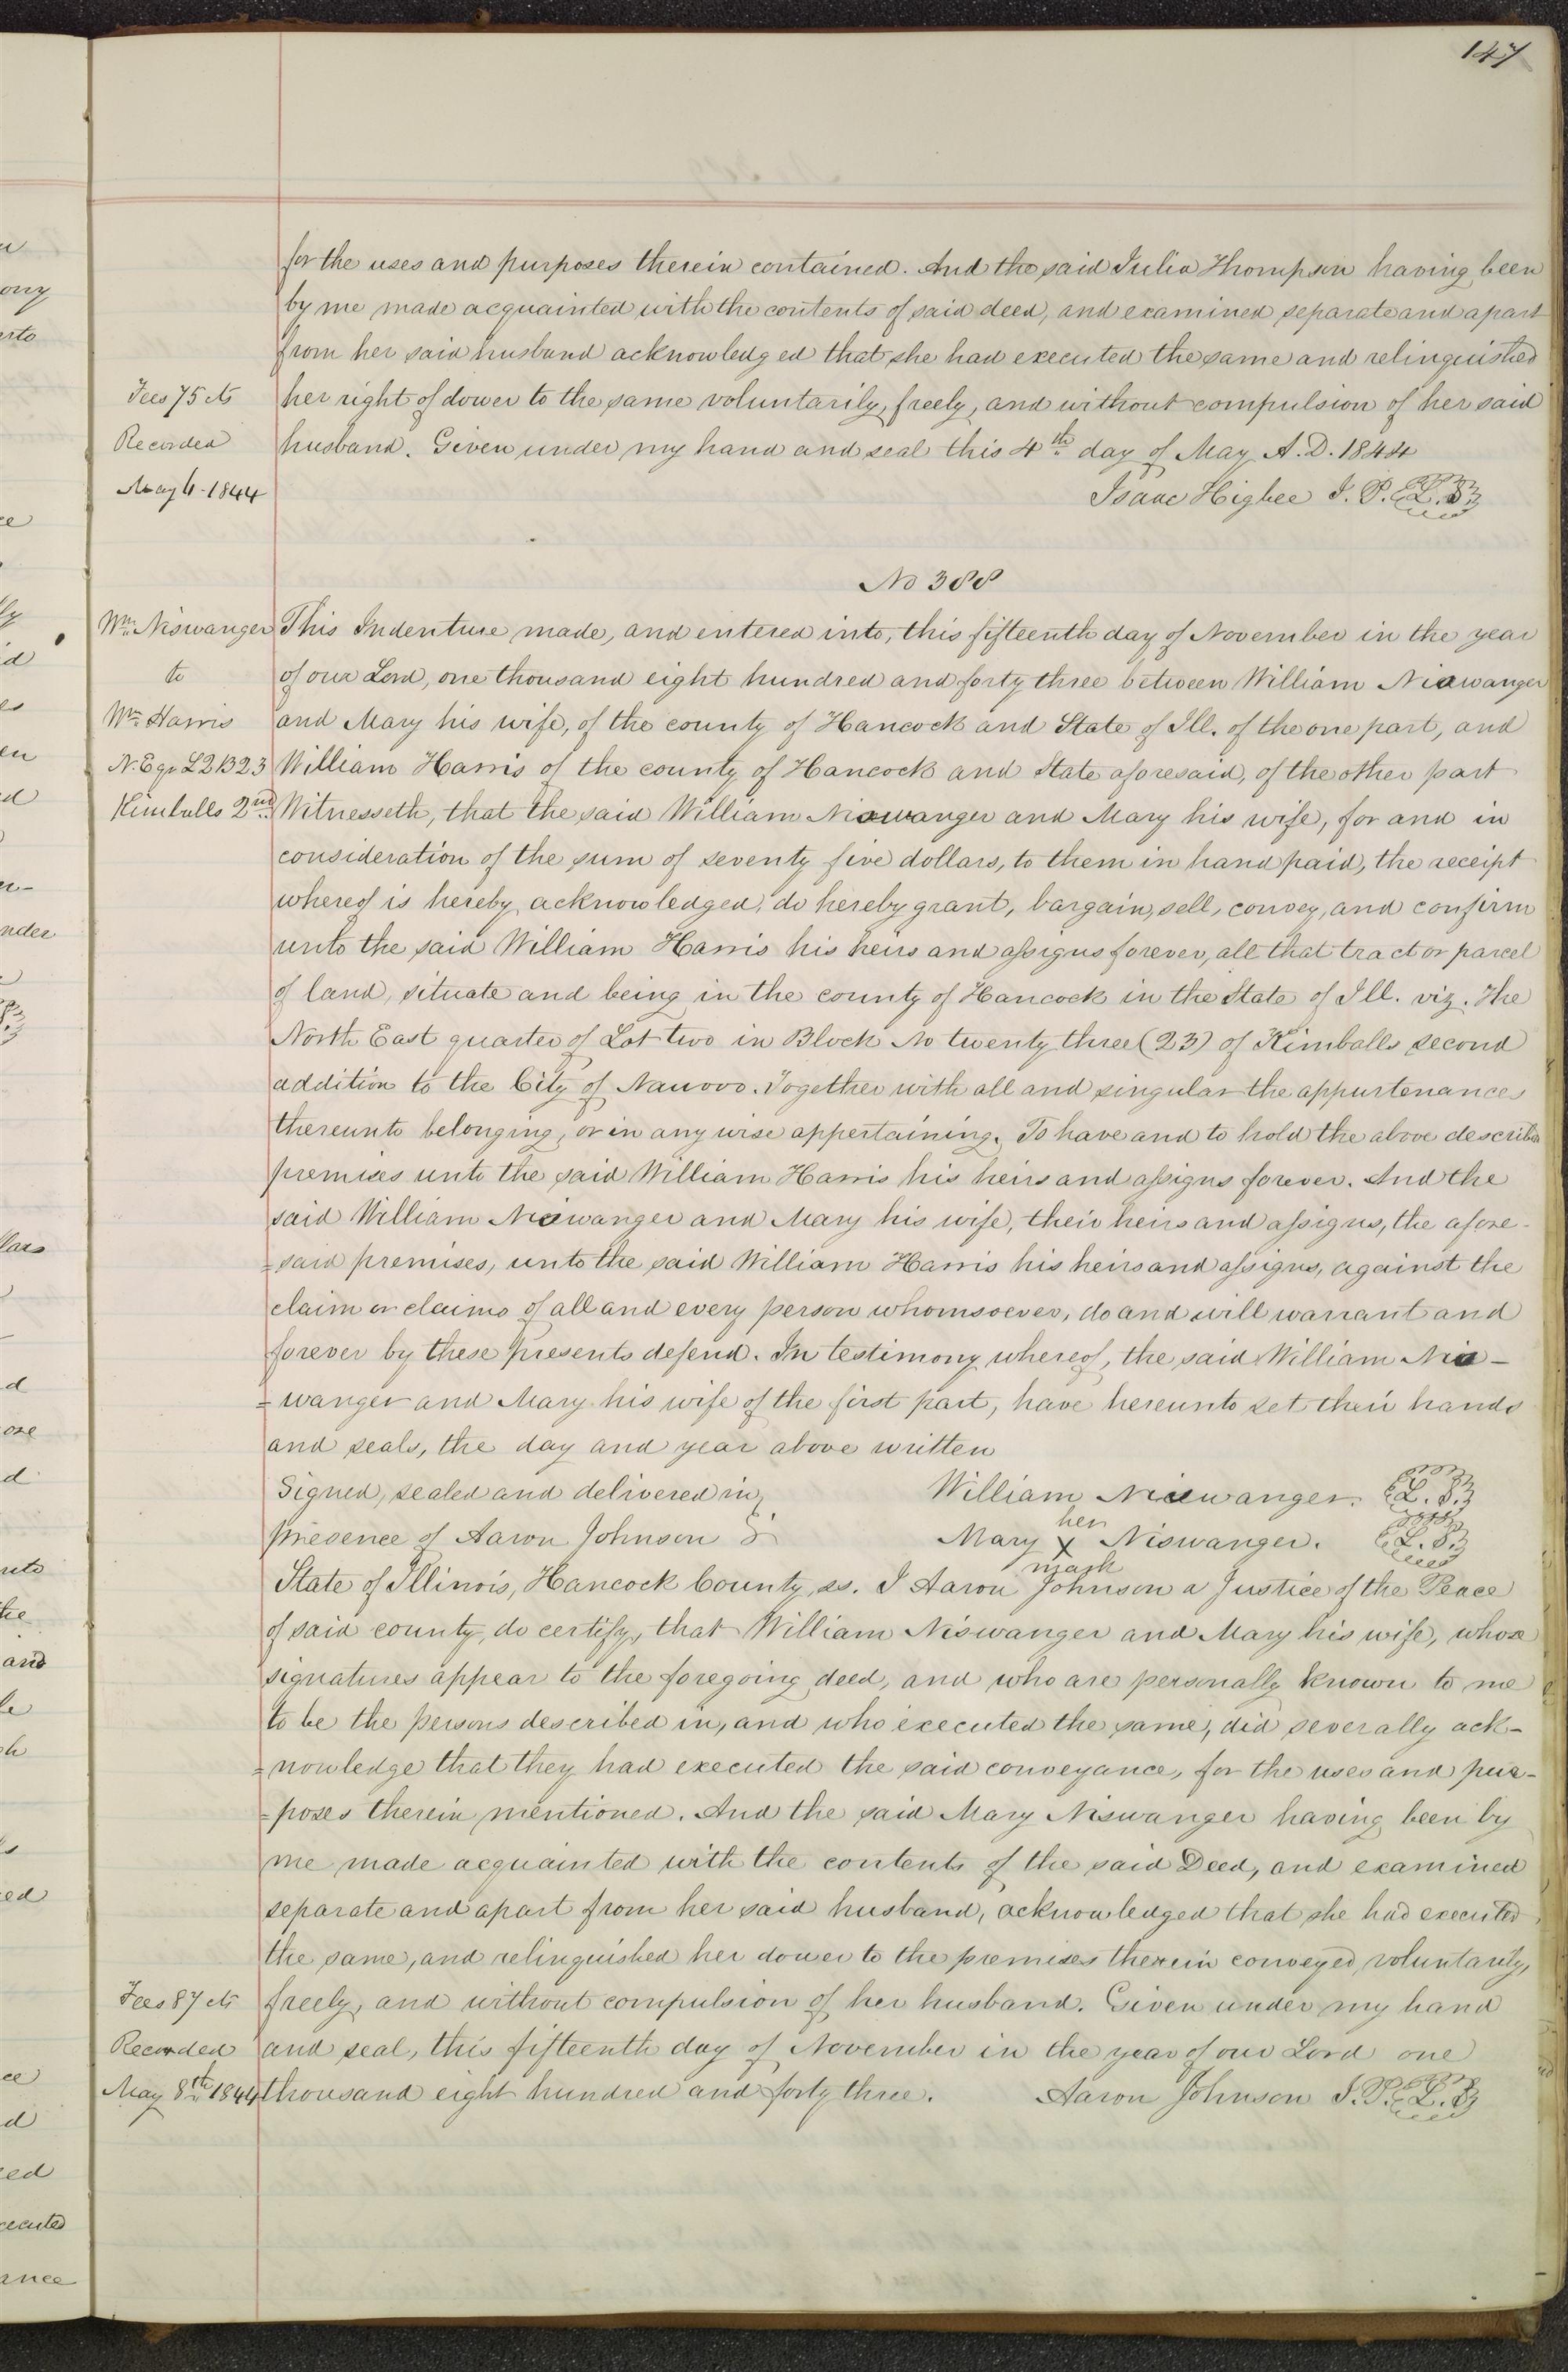 147
for the uses and purposes therein contained. And the said Julia Thompson having been
by me made acquainted with the contents of said deed, and examined separate and apart
from her said husband acknowledged that she had executed the same and relinquished
Fees 75 cts
her right of dower to the same voluntarily, freely, and without compulsion of her said
Recorded
husband. Given under my hand and seal this 4th day of May A.D. 1844
May 4-1844
Isaac Higbee J. P. L. S.
No 388
Wm. Niswanger
This Indenture made, and entered into, this fifteenth day of November in the year
to
of our Lord, one thousand eight hundred and forty three between William Niswanger
Wm. Harris
and Mary his wife, of the county of Hancock and State of Ill. of the one part, and
N.E qr L2 B23
William Harris of the county of Hancock and State aforesaid, of the other part
Kimballs 2nd
Witnesseth, that the said William Niswanger and Mary his wife, for and in
consideration of the sum of seventy five dollars, to them in hand paid, the receipt
whereof is hereby acknowledged, do hereby grant, bargain, sell, convey, and confirm
unto the said William Harris his heirs and assigns forever, all that tract or parcel
of land, situate and being in the county of Hancock in the State of Ill. viz. The
North East quarter of Lot two in Block No twenty three (23) of Kimballs second
addition to the City of Nauvoo. Together with all and singular the appurtenances
thereunto belonging, or in any wise appertaining. To have and to hold the above described
premises unto the said William Harris his heirs and assigns forever. And the
said William Niswanger and Mary his wife, their heirs and assigns, the afore-
=said premises, unto the said William Harris his heirs and assigns, against the
claim or claims of all and every person whomsoever, do and will warrant and
forever by these Presents defend. In testimony whereof, the said William Nis-
=wanger and Mary his wife of the first part, have hereunto set their hands
and seals, the day and year above written
Signed, sealed and delivered in
William Niswanger. L. S.
presence of Aaron Johnson
her
Mary X Niswanger. L. S.
mark
State of Illinois, Hancock County, ss. I Aaron Johnson a Justice of the Peace
of said county, do certify, that William Niswanger and Mary his wife, whose
signatures appear to the foregoing deed, and who are personally known to me
to be the persons described in, and who executed the same, did severally ack-
=nowledge that they had executed the said conveyance, for the uses and pur-
=poses therein mentioned. And the said Mary Niswanger having been by
me made acquainted with the contents of the said Deed, and examined
separate and apart from her said husband, acknowledged that she had executed
the same, and relinquished her dower to the premises therein conveyed, voluntarily,
Fees 87 cts
freely, and without compulsion of her husband. Given under my hand
Recorded
and seal, this fifteenth day of November in the year of our Lord one
May 8th 1844
thousand eight hundred and forty three. Aaron Johnson J. P. L. S.